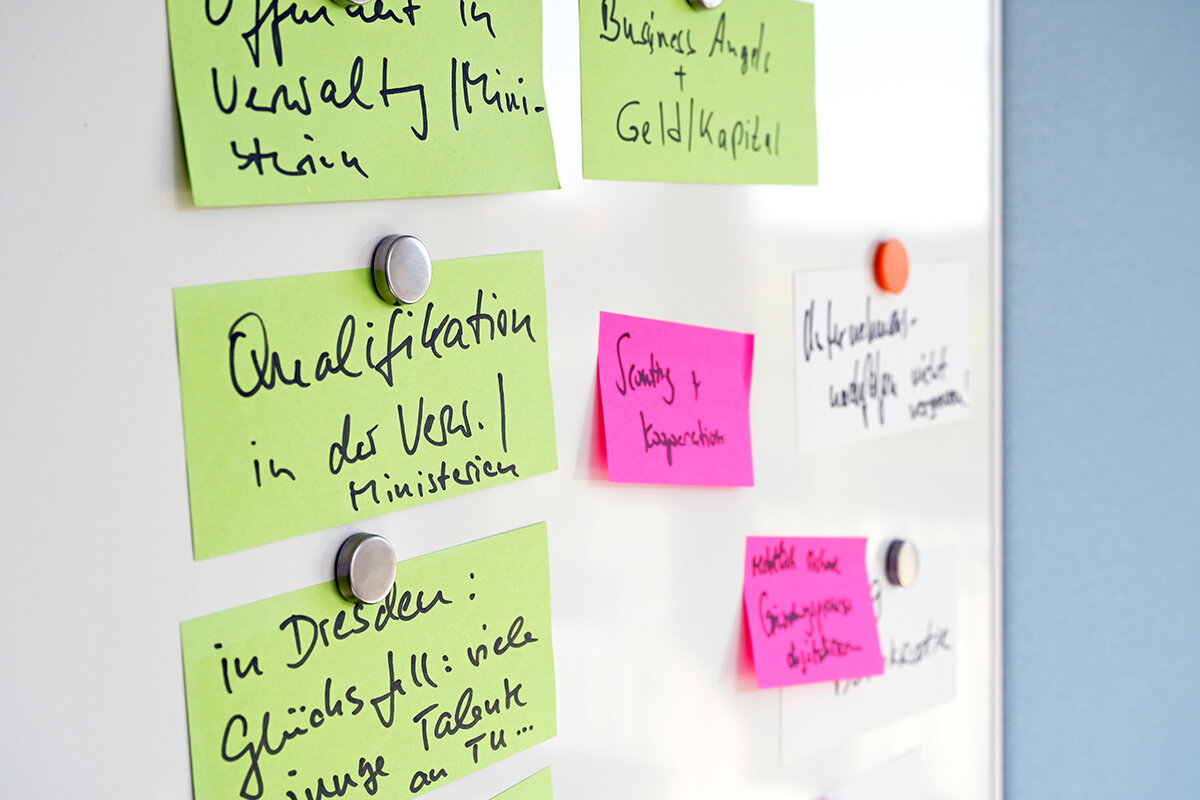 Offenheit in
Verwaltg/Mini-
sterien
Business Angels
+
Geld/Kapital
Qualifikation
in der Verw./
Ministerien
Scouting +
Kooperation
Unternehmens-
nachfolgen nicht
vergessen!
in Dresden:
Glücksfall: viele
junge Talente
an TU...
digitalisieren